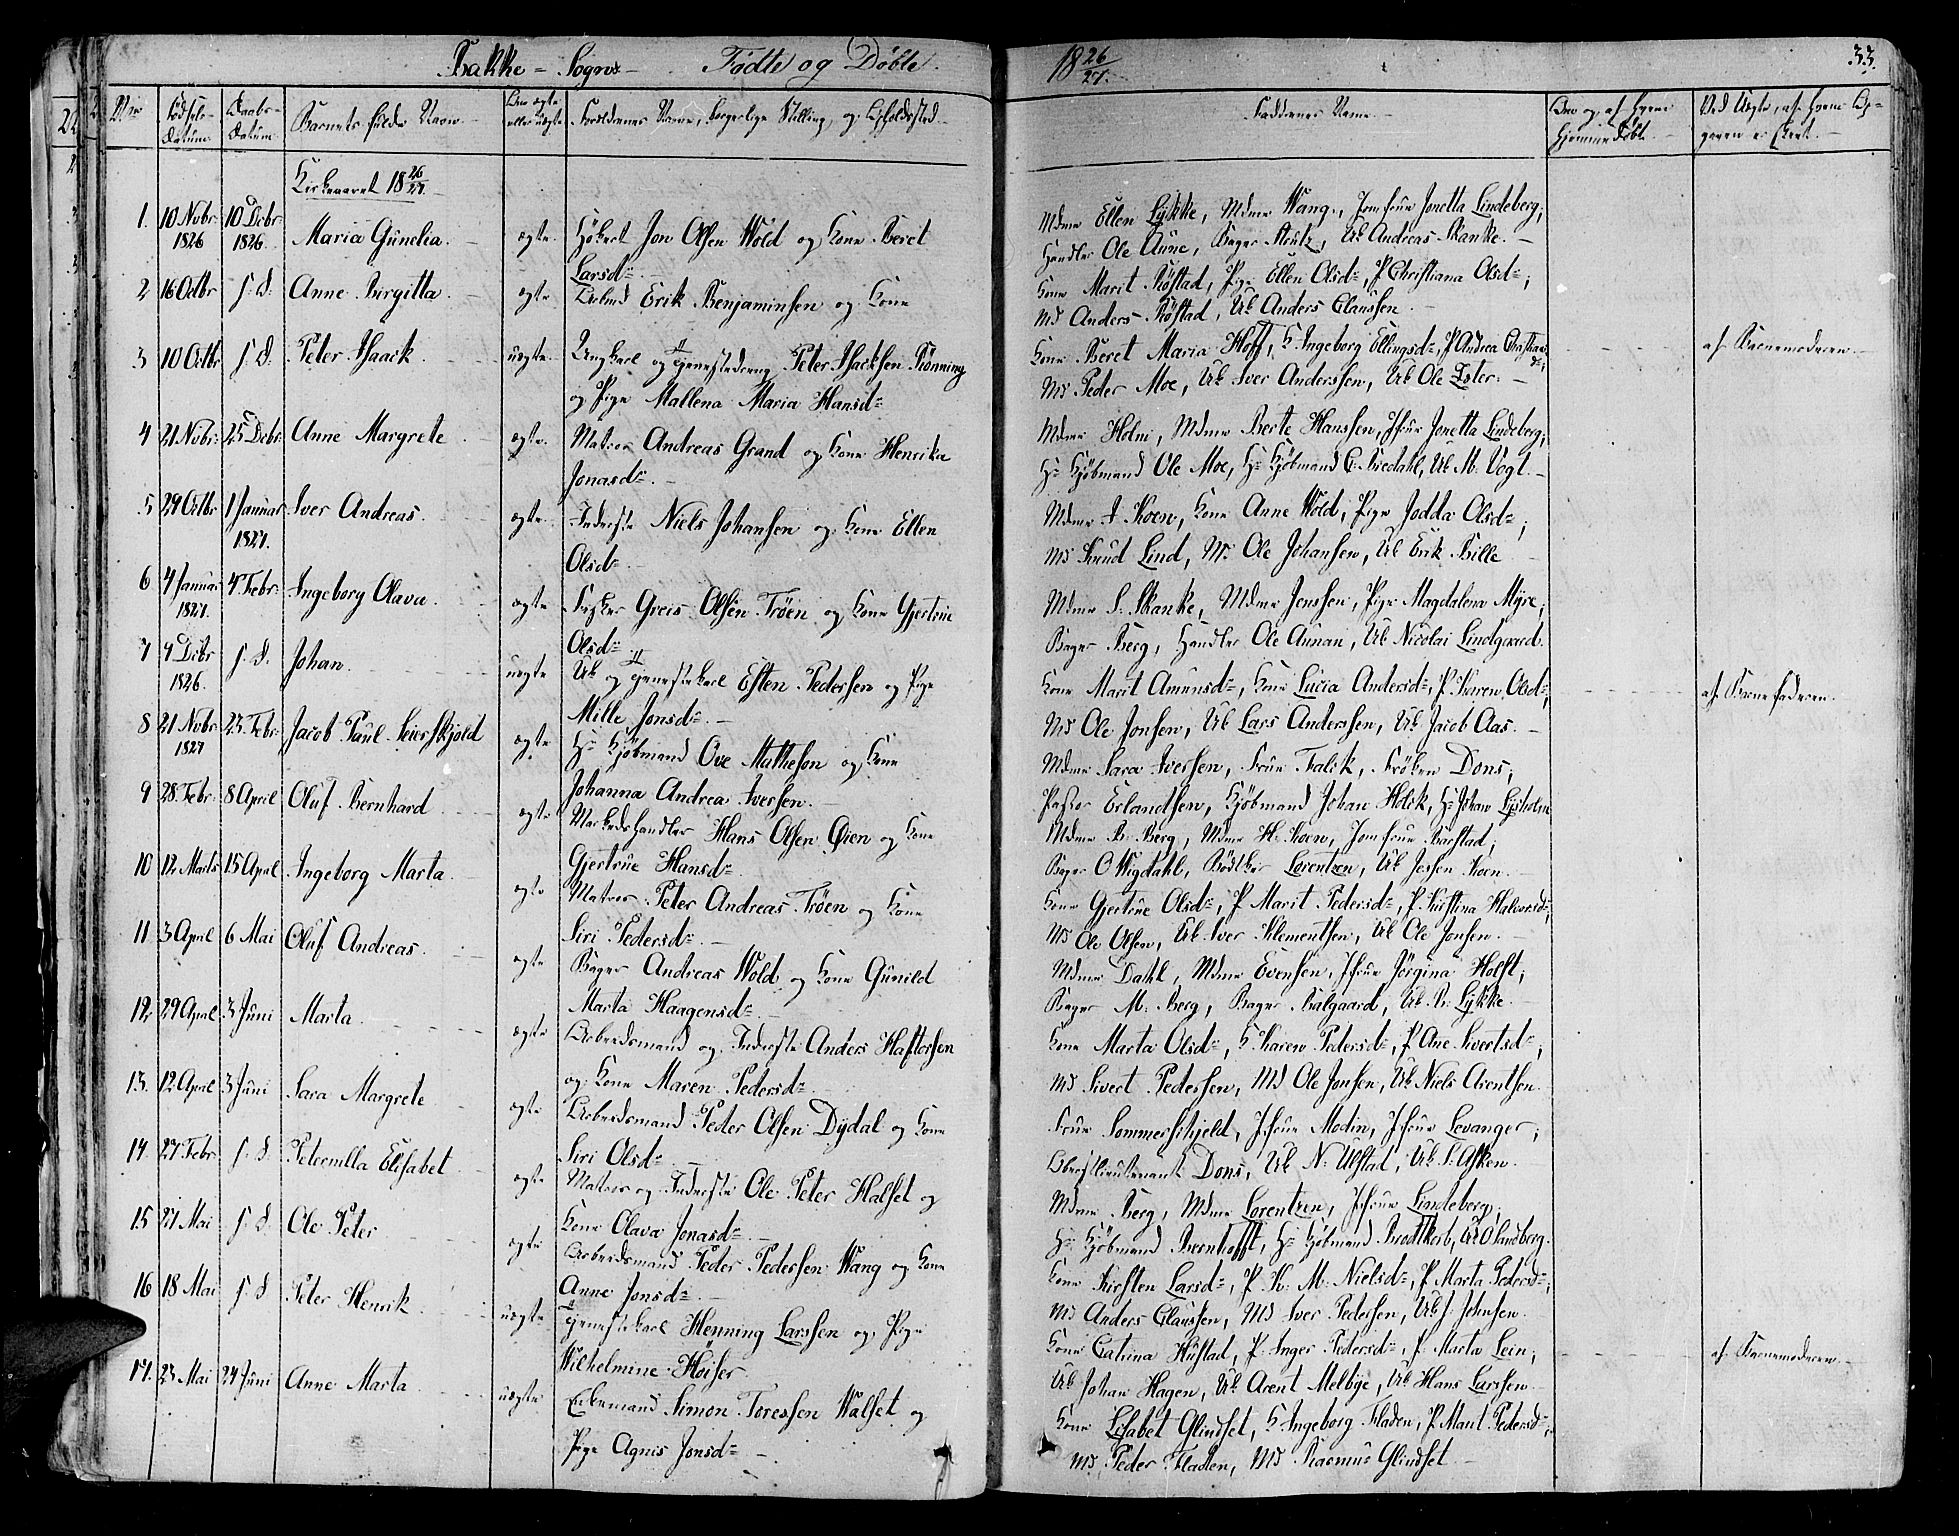 Bakke-Sogns- Fødte og Døbte.
18 26/27.
33.
Barnets fulde Navn.
Faddernes Navne.
Kirkeaaret 18 26/27.
1. 10 Novbr 1826 10 Decbr 1826. Maria Gunelia. ægte. Jon Olsen Wold og Kone Beret
Larsd=
Mdme Ellen Lykke, Mdme Wang, Jomfrue Jonetta Lindeberg;
Handler Ole Aune, Bager Stutz, Uk Andreas Skanke.
2 16 Octbr s. d. Anne Birgitta. ægte Erik Benjaminsen og Kone
Kone Marit Röstad, Pige Ellen Olsd=, P Christiana Olsd=;
Md Anders Röstad, Uk Anders Claussen.
3 10 Octbr s. d. Peter Isaack. uægte. Ungkarl og Peter Isacksen Rönning
og Pige Mallena Maria Hansd=
Kone Beret Maria Hoff, K Ingeborg Ellingsd=, P Andrea Christiansd=;
Md Peder Moe, Uk Iver Anderssen, Uk Ole Lster.
af Barnemoderen.
4 21 Novbr. 25 Decbr. Anne Margrete ægte. Matros Andreas Grand og Kone Henrika
Jonasd=.
Mdme Holm, Mdme Berte Hanssen, Jfrue Jonetta Lindeberg;
Hr Kjöbmand Ole Moe, Hr Kjöbmand C. Bredahl, Uk M. Vogt.
5 29 Octbr 1 Januar 1827. Iver Andreas. ægte. Inderste Niels Johansen og Kone Ellen
Olsd=
Mdme A Koen, Kone Anne Wold, Pige Jodda Olsd=;
Md Knud Lind, Md Ole Johansen, Uk Erik Bille
6 4 Januar 1827. 4 Febr. Ingeborg Olava. ægte Fisker Greis Olsen Tröen og Kone Gjertrue
Olsd=
Mdme S. Skanke, Mdme Jenssen, Pige Magdalena Myre;
Bager Berg, Handler Ole Aunan, Uk Nicolai Lindgaard.
7 4 Decbr 1826. s. d. Johan. uægte Uk og Tjenestekarl Esten Pedersen og Pige
Mille Jonsd=.
Kone Marit Amunsd=, Kone Lucia Andersd=, P. Karen Olsd=;
Md Ole Jonsen, Uk Lars Anderssen, Uk Jacob Aas.
af Barnefaderen.
8 21 Novbr 1827 23 Febr. Jacob Paul Seierskjold ægte. Hr Kjöbmand Ove Matheson og Kone
Johanna Andrea Iversen.
Mdme Sara Iversen, Frue Falck, Fröken Dons;
Pastor Erlandsen, Kjöbmand Johan Holck, Hr Johan Lysholm
9 28 Febr. 8 April Oluf Bernhard ægte Markedshandler Hans Olsen Øien og Kone
Gjertrue Hansd=.
Mdme B. Berg, Mdme H. Koen, Jomfrue Barstad;
Bager O Wigdahl, Bödker Lorentzen, Uk Jessen Koen.
10 12 Marts 15 April Ingeborg Marta. ægte Matros Peter Andreas Tröen og Kone
Siri Pedersd=.
Kone Gjertrue Olsd=, P Marit Pedersd=, P. Kirstina Halvorsd=;
Md Ole Olsen, Uk Iver Klementsen, Uk Ole Jonsen.
11 3 April 6 Mai Oluf Andreas. ægte Bager Andreas Wold og Kone Gunild
Marta Haagensd=.
Mdme Dahl, Mdme Evensen, Jfrue Jörgina Holst;
Bager M. Berg, Bager Balgaard, Uk B. Lykke.
12 29 April 3 Juni Marta. ægte Arbeidsmand og Inderste Anders Haftorsen
og Kone Maren Pedersd=.
Kone Marta Olsd=, K Karen Pedersd=, P Ane Sivertsd=;
Md Sivert Pedersen, Md Ole Jonsen, Uk Niels Arentsen.
13. 12 April 3 Juni Sara Margrete ægte Arbeidsmand Peder Olsen Dydal og Kone
Siri Olsd=
Frue Sommerschjeld, Jfrue Modin, Jfrue Levanger;
Oberstlieutenant Dons, Uk N. Ulstad, Uk S. Asken.
14 27 Febr. s. d Petermilla Elisabet ægte Matros og Inderste Ole Peter Halset og
Kone Olava Jonasd=.
Mdme Berg, Mdme Lorentzen, Jfrue Lindeberg;
Hr Kjöbmand Brenhofft, Hr Kjöbmand Brodtkorb,
15 27 Mai s. d. Ole Peter ægte Arbeidsmand Peder Pedersen Wang og Kone
Anne Jonsd=.
Kone Kirsten Larsd=, P. K. M. Nielsd=, P Marta Pedersd=;
Md Anders Claussen, Md Iver Pedersen, Uk J. Johnsen.
16 18 Mai s. d Peter Henrik. uægte Tjenestekarl Henning Larssen og Pige
Wilhelmine Höiser
Kone Catrina Hustad, P. Inger Pedersd=, P. Marta Lein;
Uk Johan Hagen, Uk Arent Melbye, Uk Hans Larssen.
af Barnemoderen.
17. 23 Mai 24 Juni Anne Marta uægte Enkemand Simon Toressen Halset og
Pige Agnis Jonsd=
Kone Lisabet Glindset, K Ingeborg Fladen, P. Marit Pedersd=;
Md Peder Fladen, Md Rasmus Glindset.